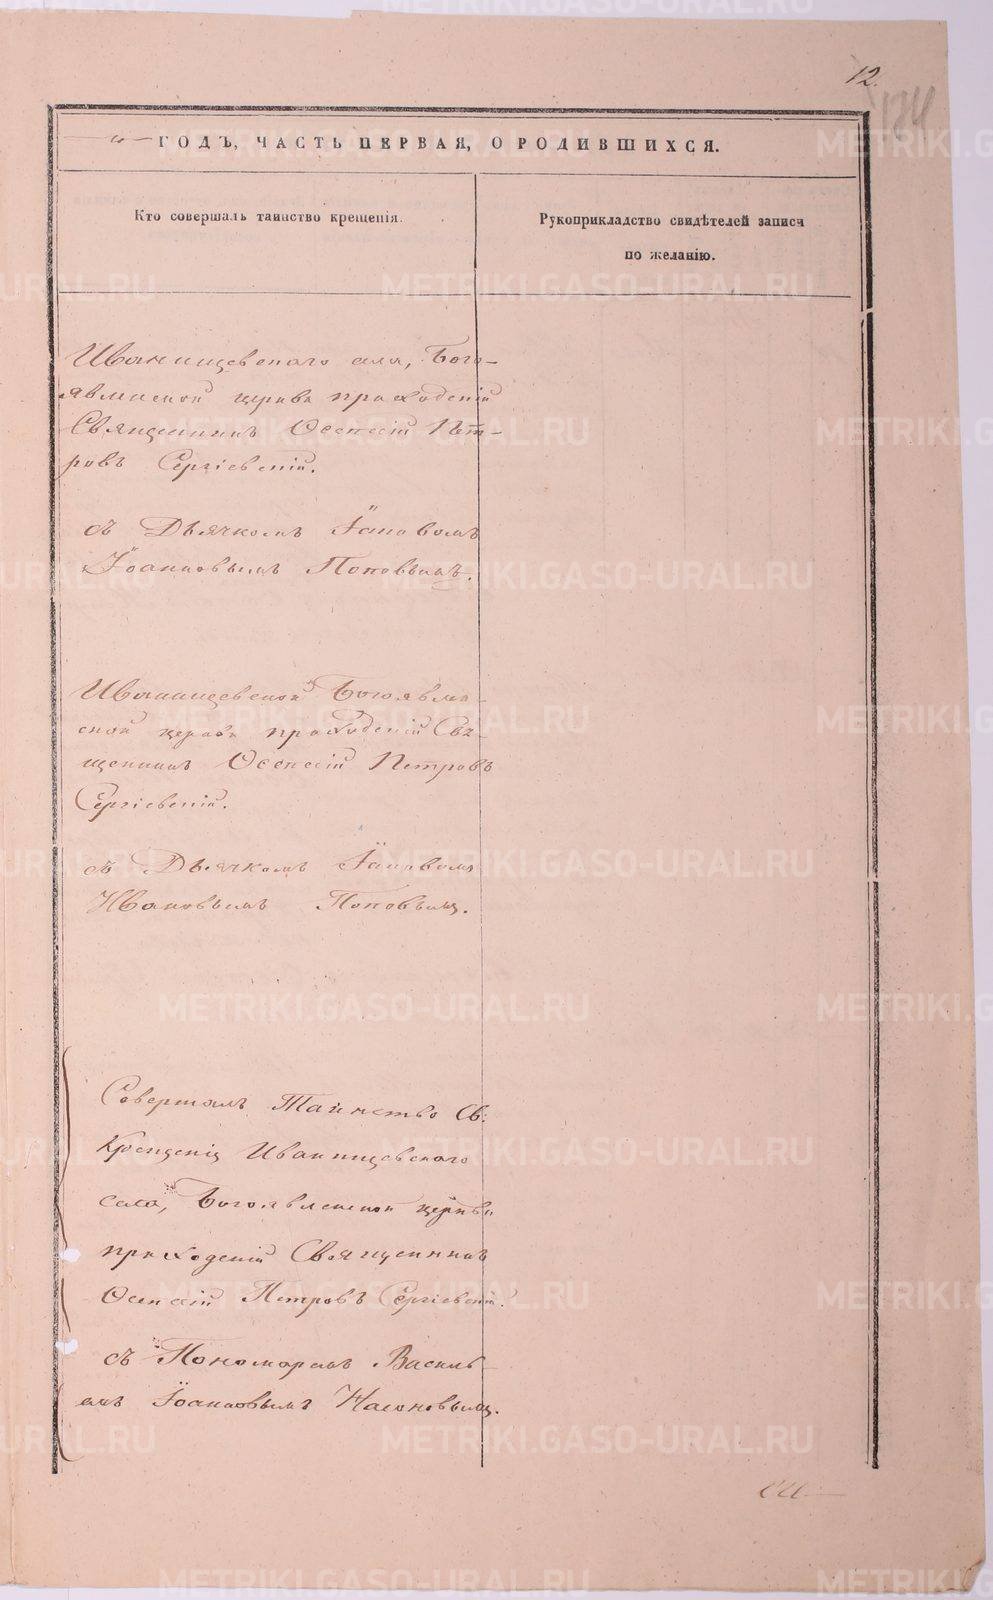 12.
134
ГОДЪ, ЧАСТЬ ПЕРВАЯ, О РОДИВШИХСЯ.
Кто совершалъ таинство крещенія.
Рукоприкладство свидѣтелей записи
по желанію.
Иванищевскаго села, Бого-
явленской церкви приходскій
Священникъ Осепсій Пет-
ровъ Сергіевскій.
съ Дьячкомъ Іаковомъ
Іоанновымъ Поповымъ.
Иванищевской Богоявлен-
ской церкви приходскій Свя-
щенникъ Осепсій Петровъ
Сергіевскій.
съ Дьячкомъ Іаковомъ
Ивановымъ Поповымъ.
Совершалъ Таинство Св:
Крещенія Иванищевскаго
села, Богоявленской церкви
приходскій Священникъ
Осепсій Петровъ Сергіевскій.
съ Пономаремъ Василь-
емъ Іоанновымъ Насоновымъ.
METRIKI.GASO-URAL.RU